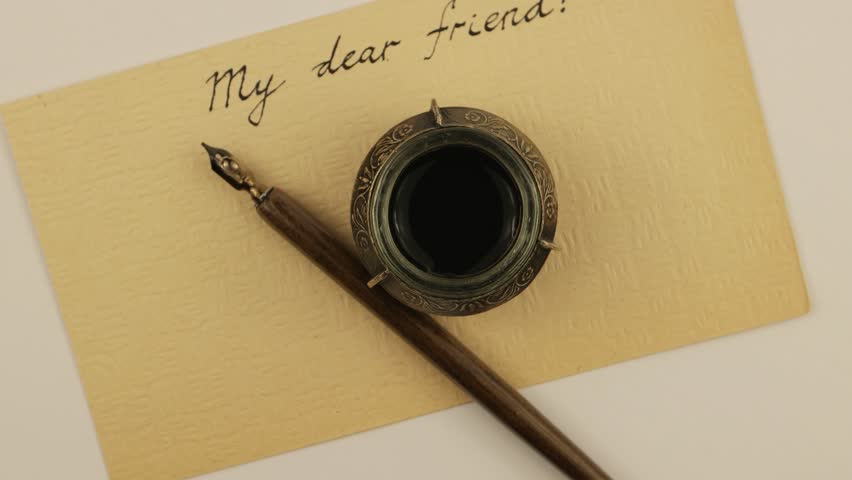 My dear friend!